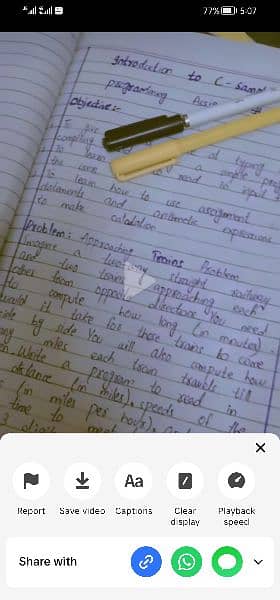 77% 5:07
Introduction to C-
programming
Objective:-
to give of typing
compiling a simple
to learn to read to input
to learn how to use assignment
statements and arithmetic expressions
to make calculation
Problem: Approaching Trains Problem
imagine a two-way straight railway
and two trains approaching each
other from opposite directions You need
to compute how long (in minutes)
would it take for those trains to come
side by side You will also compute how
many miles each train travels till
Write a program to read in
distance (in miles), speeds of the
(in miles per hour),
time to
Report
Save video
Aa
Captions
Clear
display
Playback
speed
Share with